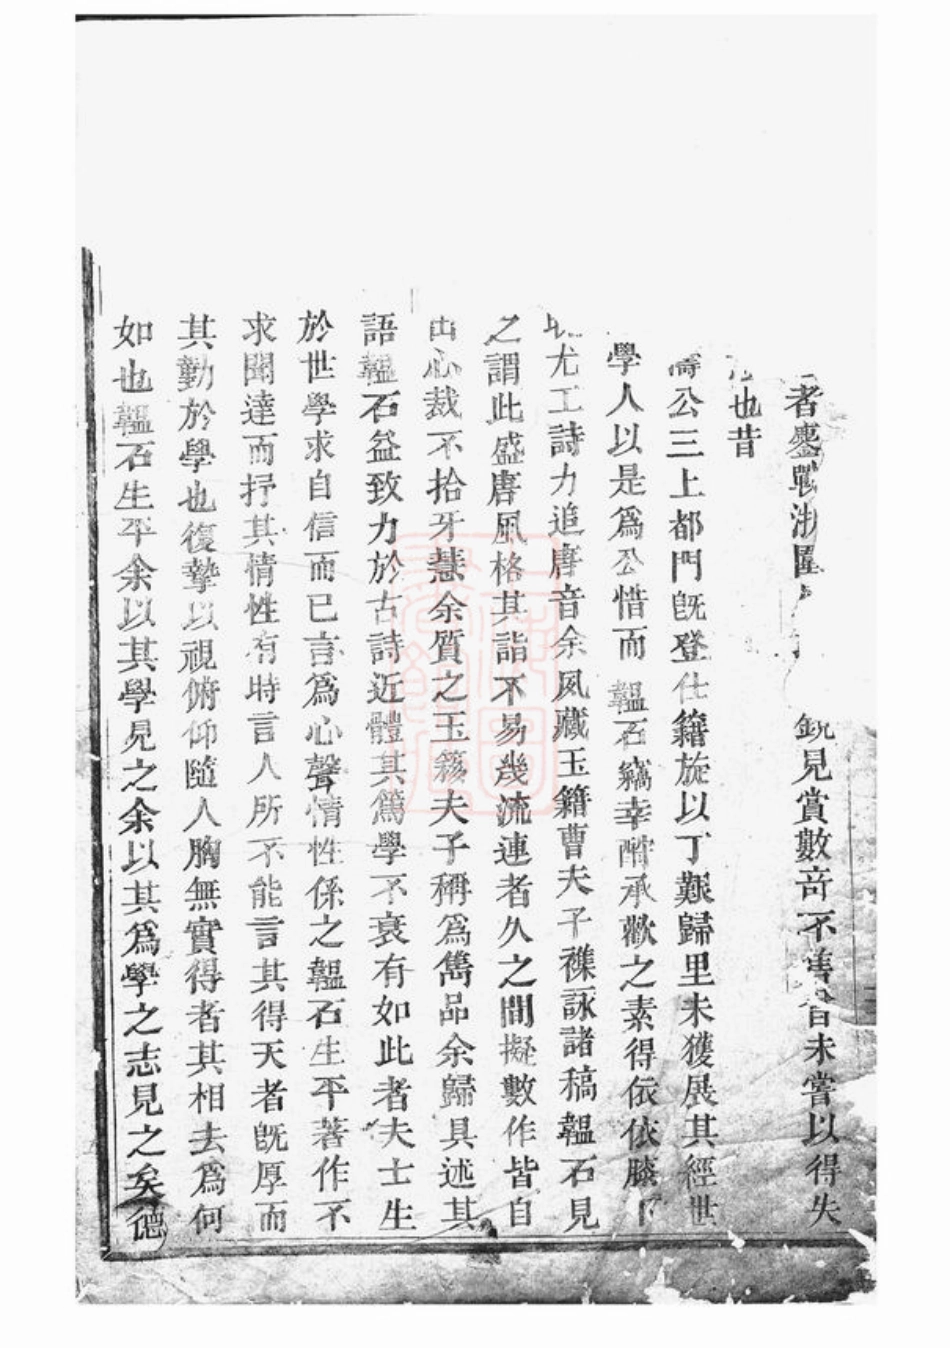 者鏖戰浙闈
銳見賞數奇不售皆未嘗以得失
也昔
公三上都門旣登仕籍旋以丁艱歸里未獲展其經世
學人以是爲公惜而 韞石竊幸酣承歡之素得依依膝下
尤工詩力追唐音余夙藏玉籍曹夫子襍詠諸稿韞石見
之謂此盛唐風格其詣不易幾流連者久之間擬數作皆自
出心裁不拾牙慧余質之玉籍夫子稱爲雋品余歸具述其
語韞石益致力於古詩近體其篤學不衰有如此者夫士生
於世學求自信而已言爲心聲情性係之韞石生平著作不
求聞達而抒其情性有時言人所不能言其得天者旣厚而
其勤於學也復摯以視俯仰隨人胸無實得者其相去爲何
如也韞石生平余以其學見之余以其爲學之志見之矣德